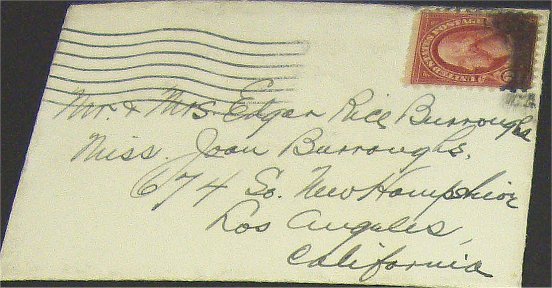 UNITED STATES POSTAGE
Mr. & Mrs. Edgar Rice Burroughs
Miss. Joan Burroughs,
674 So. New Hampshire
Los Angeles,
California